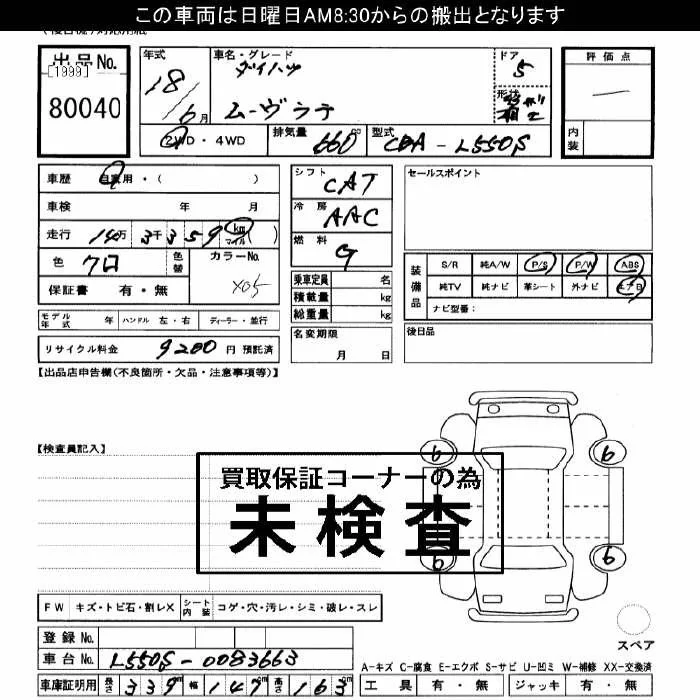 この車両は日曜日AM8:30からの搬出となります
出品No.
[1999]
80040
年式
18/6月
車名・グレード
ダイハツ
ムーヴラテ
ドア
5
形状
評価点
内装
2WD・4WD
排気量 660 cc
型式 CBA-L550S
車歴 自家用・( )
車検 年 月
走行 14万3千359 km マイル ( )
色 クロ 色替
カラーNo.
X05
保証書 有・無
シフト CAT
冷房 AAC
燃料 G
乗車定員 名
積載量 kg
総重量 kg
セールスポイント
装備品
S/R 純A/W P/S P/W ABS
純TV 純ナビ 革シート 外ナビ エアB
ナビ型番:
モデル年式 年 ハンドル 左・右 ディーラー・並行
名変期限
月 日
後日品
リサイクル料金 9200 円 預託済
【出品店申告欄(不良箇所・欠品・注意事項等)】
【検査員記入】
買取保証コーナーの為
未検査
6 6
6 6
FW キズ・トビ石・割レX シート内装 コゲ・穴・汚レ・シミ・破レ・スレ
スペア
登録No.
車台No. L550S-0083663
A-キズ C-腐食 E-エクボ S-サビ U-凹ミ W-補修 XX-交換済
車庫証明用 長さ 339 cm 幅 147 cm 高さ 163 cm
工具 有・無 ジャッキ 有・無